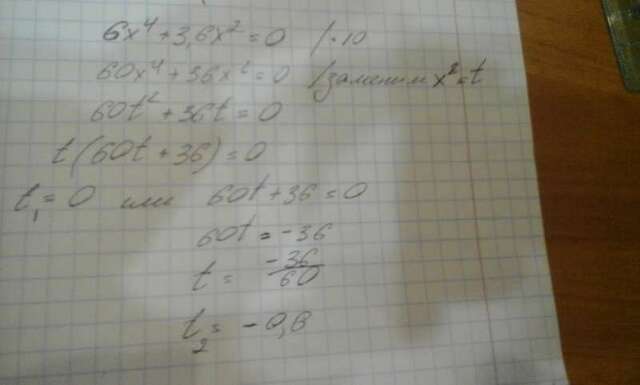 6x⁴+3,6x²=0 /·10
60x⁴+36x²=0 /заменим x²=t
60t²+36t=0
t(60t+36)=0
t₁=0 или 60t+36=0
60t=-36
t= -36/60
t₂= -0,6